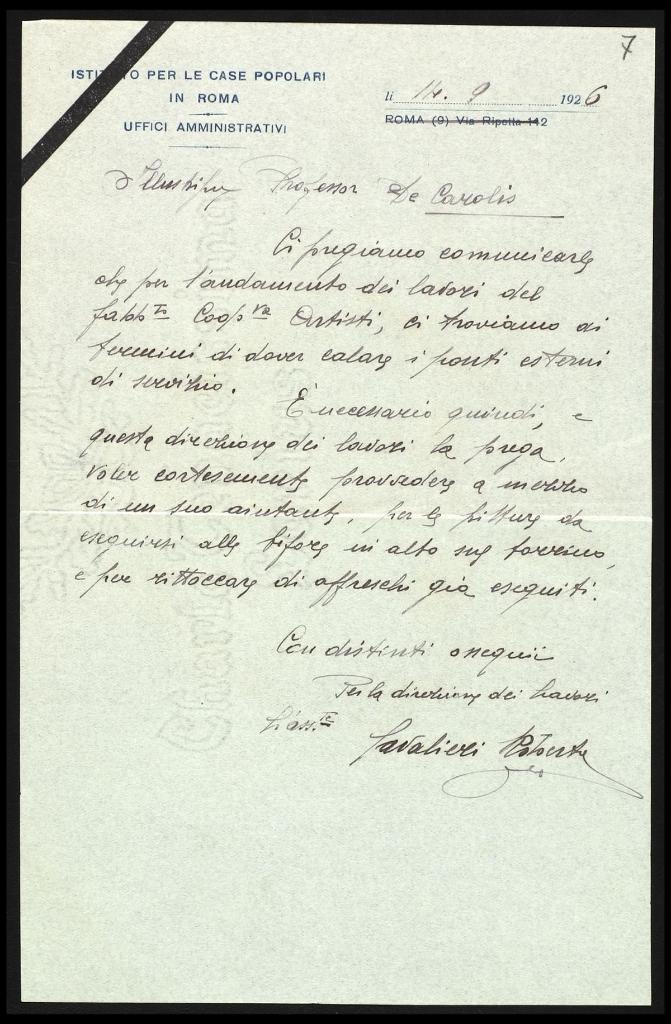 7
ISTITUTO PER LE CASE POPOLARI
IN ROMA
UFFICI AMMINISTRATIVI
li 14. 9 1926
ROMA (9) Via Ripetta 112
Illustrissimo Professor De Carolis
Ci pregiamo comunicarle
che per l'andamento dei lavori del
fabb.to Coop.va Artisti, ci troviamo ai
termini di dover calare i ponti esterni
di servizio.
È necessario quindi, e
questa direzione dei lavori la prega,
voler cortesemente provvedere a mezzo
di un suo aiutante, per le pitture da
eseguirsi alle bifore in alto sul torrino,
e per rittoccare di affreschi già eseguiti.
Con distinti ossequii
Per la direzione dei lavori
L'ass.te
Cavalieri Roberto